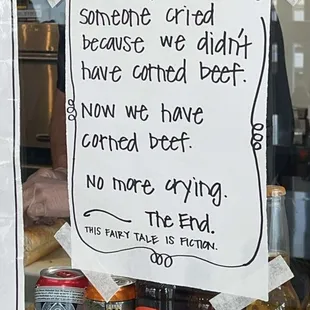 someone cried
because we didn't
have corned beef.
Now we have
corned beef.
No more crying.
The End.
THIS FAIRY TALE IS FICTION.